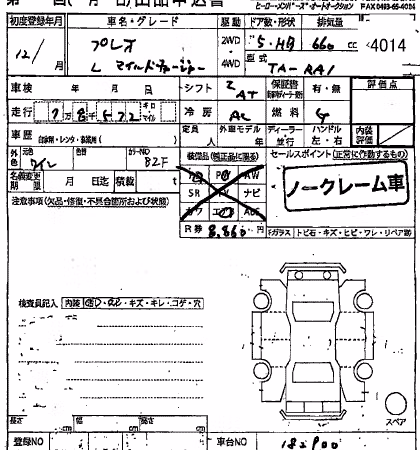 ヒーロー・メンバーズ・オートオークション
FAX 0493-65-4004
初度登録年月 車名・グレード 駆動 ドア数・形状 排気量
12/ 月 プレオ 2WD 5・HB 660 cc 4014
L マイルドチャージャー 4WD 型式 TA-RA1
車検 年 月 日 シフト AT 保証書 有・無 評価点
走行 7万8千572 キロ マイル 冷房 AC 燃料 G
定員 人 外車モデル 年 ディーラー 並行 ハンドル 左・右 内装評価
車歴 自家用・レンタ・事業用( )
外色 元色 ワイン 色替 カラーNO 82F
装備品(純正品に限る) セールスポイント(正常に作動するもの)
名義変更期限 月 日迄 積載 t
PS AW
SR TV ナビ
カワ エアB
R券 8,660 円
ノークレーム車
注意事項(欠品・修復・不具合箇所および状態)
Fガラス トビ石・キズ・ヒビ・ワレ・リペア剤
検査員記入 内装 ・キズ・キレ・コゲ・穴
スペア
長さ cm 幅 cm 高さ cm
登録NO 車台NO 182900